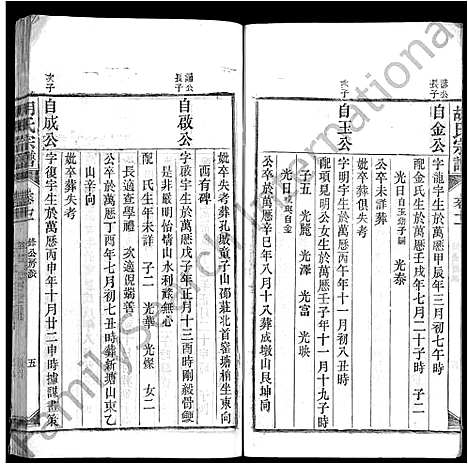 胡氏宗譜
長子
自金公
字龍宇生於萬歷甲辰年三月初七午時
配金氏生於萬歷壬戌年七月二十子時 子二
光日 光泰
公卒未詳葬
次子
自玉公
字明宇生於萬歷丙午年十一月初八丑時
配項見明公女生於萬歷壬子年十一月十九子時
子五 光麗 光溥 光富 光
光日
公卒於萬歷辛巳年八月十八葬成墩山艮坤向
妣卒葬俱失考
長子
自啟公
字啟宇生於萬歷年七月十三酉時剛毅骨鯁
是非嚴明怡情山水利祿無心
配 氏生年未詳 子二 光華 光 女二
長適查孝思 次適倪瑞善
公卒於萬歷丁酉年七月初七丑時葬新塘山東乙
山辛向
妣卒失考葬孔城童子山邵莊北首窰塘稍坐東向
西有碑
次子
自成公
字從宇生於萬歷丙申年十月廿二申時
妣卒葬失考
胡氏宗譜
公房
五
Family Search International